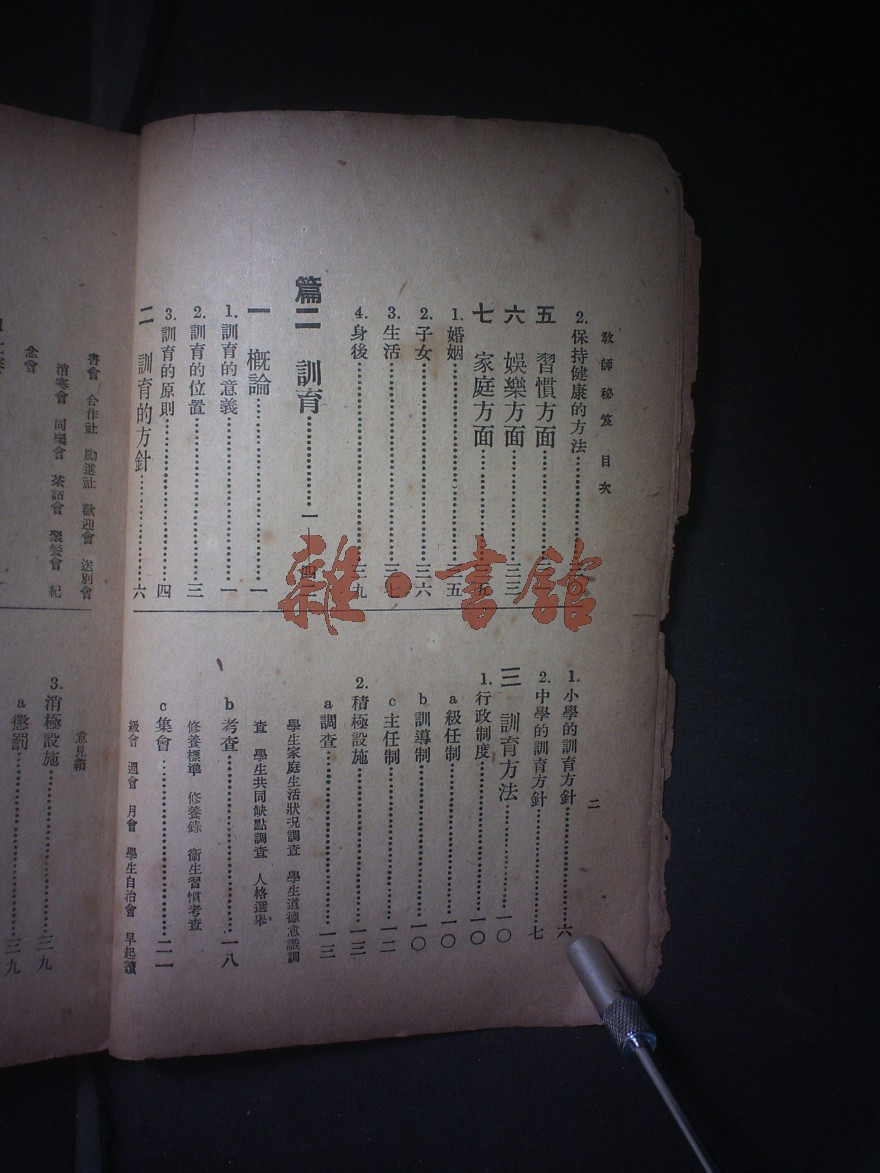 教師秘笈 目次
二
2. 保持健康的方法……三〇
五 習慣方面
六 娛樂方面……三三
七 家庭方面……三五
1. 婚姻……三五
2. 子女……三六
3. 生活……三七
4. 身後……三九
篇二 訓育……一—四
一 概論……一
1. 訓育的意義……一
2. 訓育的位置……三
3. 訓育的原則……四
二 訓育的方針……六
1. 小學的訓育方針……六
2. 中學的訓育方針……七
三 訓育方法……一〇
1. 行政制度……一〇
a 級任制……一〇
b 訓導制……一〇
c 主任制……一二
2. 積極設施……一三
a 調查……一三
學生家庭生活狀况調查 學生道德意識調
查 學生共同缺點調查 人格選舉
b 考查……一八
修養標準 修養錄 衞生習慣考查
c 集會……二一
級會 週會 月會 學生自治會 早起讀
書會 合作社 勵進社 歡迎會 送別會
消寒會 同樂會 茶話會 聚餐會 紀
念會
意見箱
3. 消極設施……三九
a 懲罰……三九
雜·書館